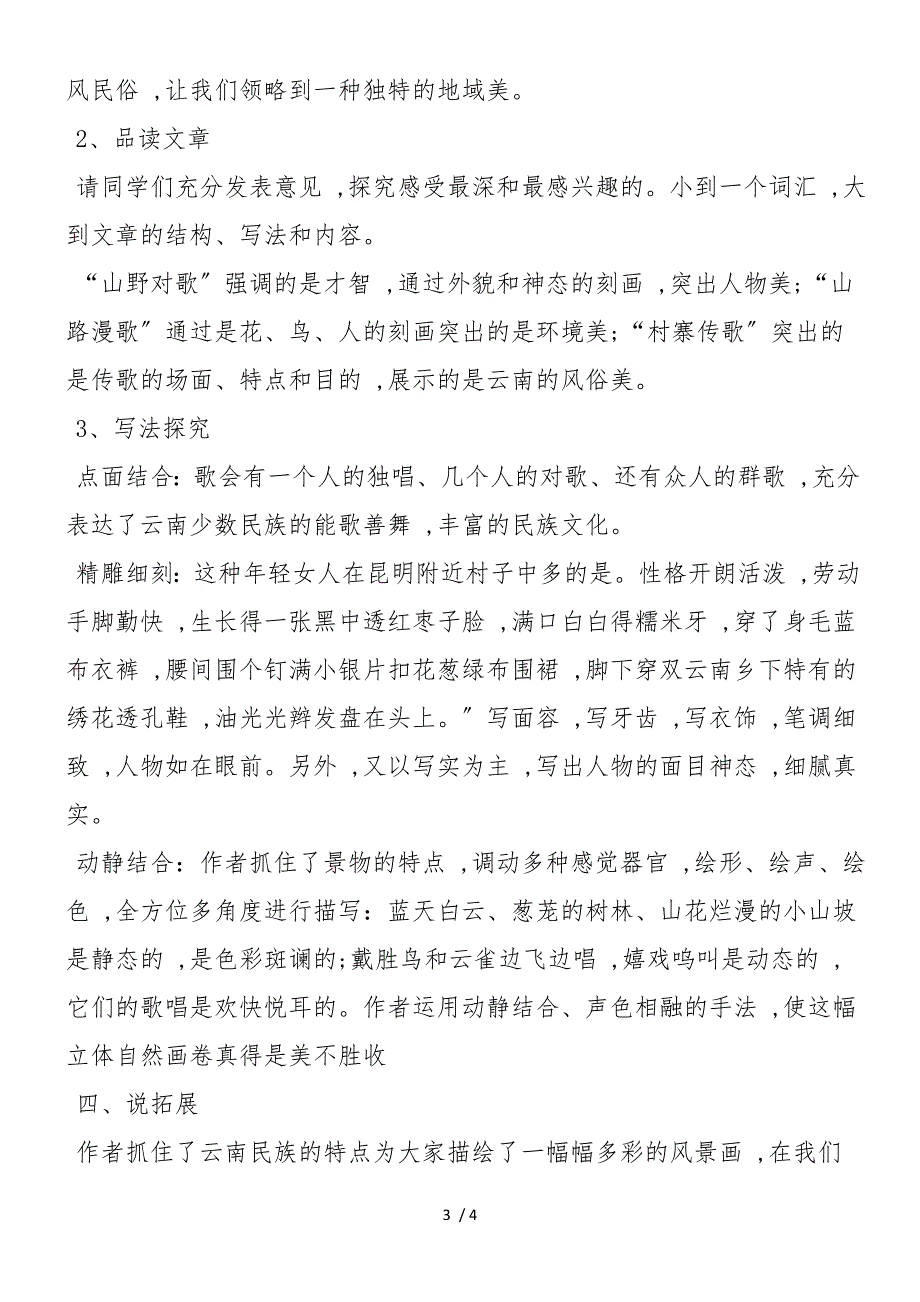 风民俗 ,让我们领略到一种独特的地域美。
2、品读文章
请同学们充分发表意见 ,探究感受最深和最感兴趣的。小到一个词汇 ,大
到文章的结构、写法和内容。
“山野对歌〞强调的是才智 ,通过外貌和神态的刻画 ,突出人物美; “山
路漫歌〞通过是花、鸟、人的刻画突出的是环境美; “村寨传歌〞突出的
是传歌的场面、特点和目的 ,展示的是云南的风俗美。
3、写法探究
点面结合: 歌会有一个人的独唱、几个人的对歌、还有众人的群歌 ,充分
表达了云南少数民族的能歌善舞 ,丰富的民族文化。
精雕细刻: 这种年轻女人在昆明附近村子中多的是。性格开朗活泼 ,劳动
手脚勤快 ,生长得一张黑中透红枣子脸 ,满口白白得糯米牙 ,穿了身毛蓝
布衣裤 ,腰间围个钉满小银片扣花葱绿布围裙 ,脚下穿双云南乡下特有的
绣花透孔鞋 ,油光光辫发盘在头上。〞写面容 ,写牙齿 ,写衣饰 ,笔调细
致 ,人物如在眼前。另外 ,又以写实为主 ,写出人物的面目神态 ,细腻真
实。
动静结合: 作者抓住了景物的特点 ,调动多种感觉器官 ,绘形、绘声、绘
色 ,全方位多角度进行描写: 蓝天白云、葱茏的树林、山花烂漫的小山坡
是静态的 ,是色彩斑谰的;戴胜鸟和云雀边飞边唱 ,嬉戏呜叫是动态的 ,
它们的歌唱是欢快悦耳的。作者运用动静结合、声色相融的手法 ,使这幅
立体自然画卷真得是美不胜收
四、说拓展
作者抓住了云南民族的特点为大家描绘了一幅幅多彩的风景画 ,在我们
3 / 4